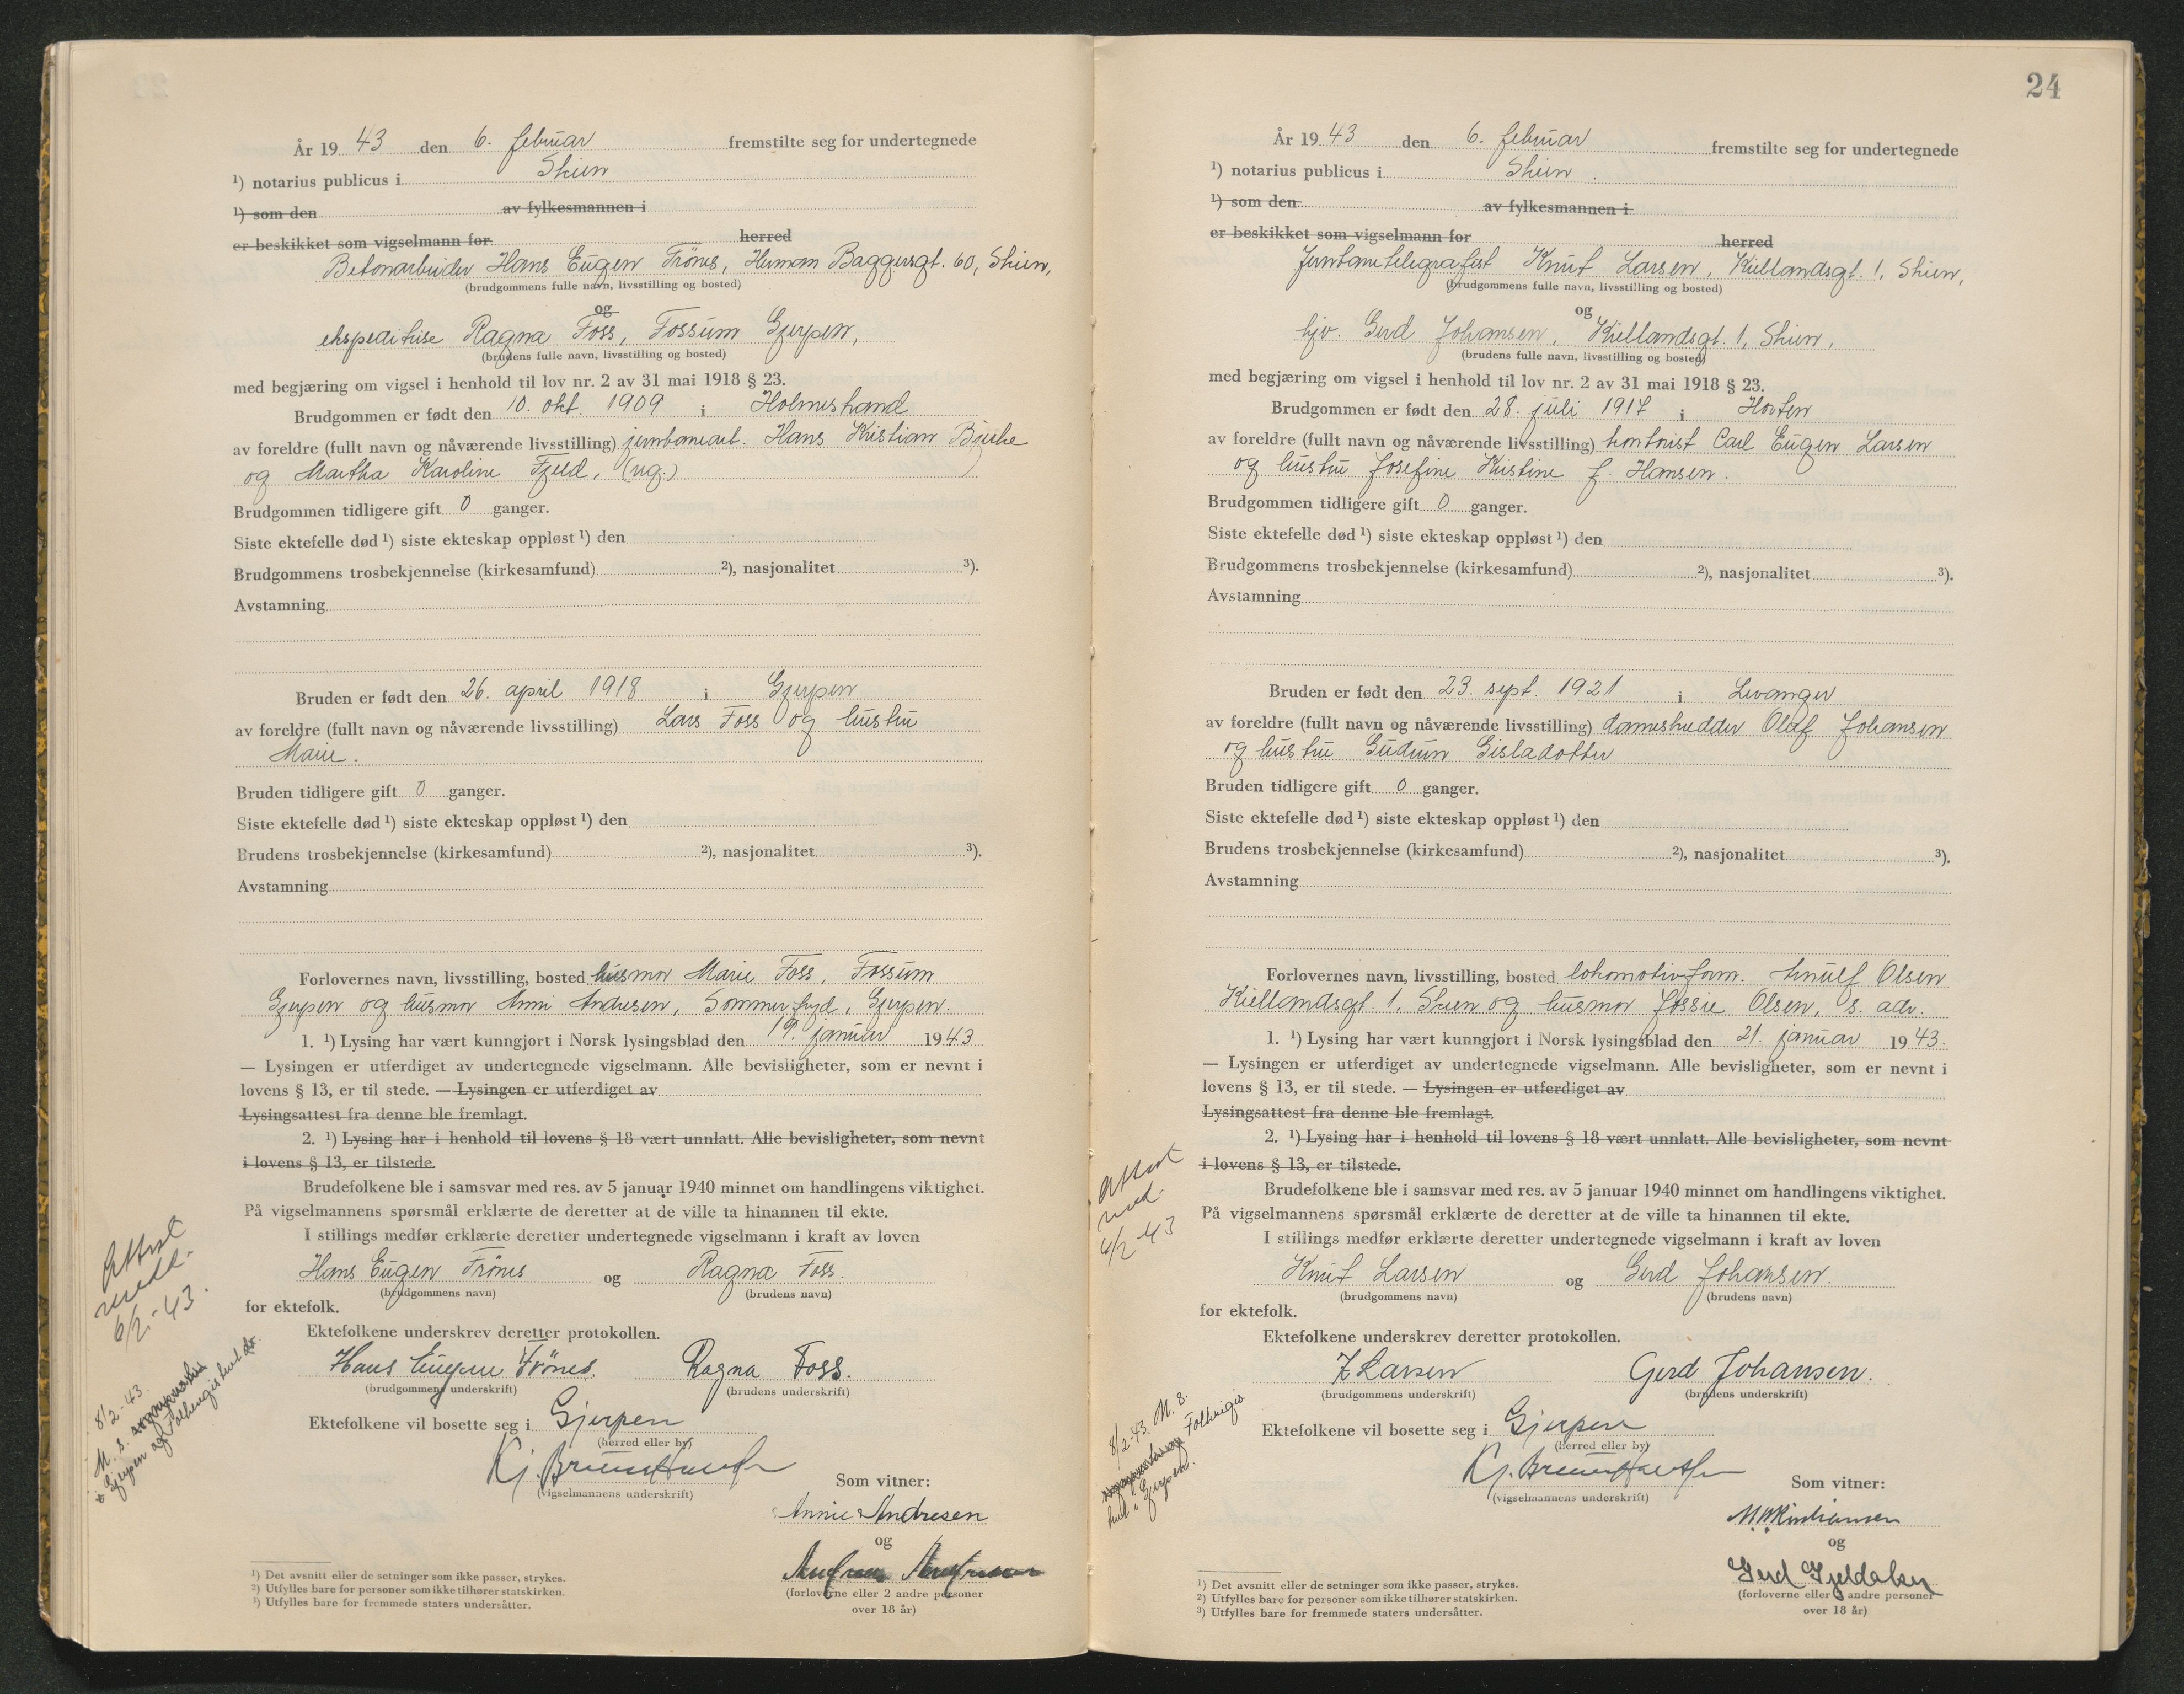 År 19 43 den 6. februar fremstilte seg for undertegnede
¹) notarius publicus i Skien
¹) som den av fylkesmannen i
er beskikket som vigselmann for herred
Betonarbeider Hans Eugen Frönes, Herman Baggersgt. 60, Skien,
(brudgommens fulle navn, livsstilling og bosted)
og
ekspeditrise Ragna Foss, Fossum Gjerpen,
(brudens fulle navn, livsstilling og bosted)
med begjæring om vigsel i henhold til lov nr. 2 av 31 mai 1918 § 23.
Brudgommen er født den 10. okt. 1909 i Holmestrand
av foreldre (fullt navn og nåværende livsstilling) jernbanearb. Hans Kristian Bjerke
og Martha Karoline Fjeld, (ug.)
Brudgommen tidligere gift 0 ganger.
Siste ektefelle død ¹) siste ekteskap oppløst ¹) den
Brudgommens trosbekjennelse (kirkesamfund) ²), nasjonalitet ³).
Avstamning
Bruden er født den 26. april 1918 i Gjerpen
av foreldre (fullt navn og nåværende livsstilling) Lars Foss og hustru
Marie.
Bruden tidligere gift 0 ganger.
Siste ektefelle død ¹) siste ekteskap oppløst ¹) den
Brudens trosbekjennelse (kirkesamfund) ²), nasjonalitet ³).
Avstamning
Forlovernes navn, livsstilling, bosted husmor Marie Foss, Fossum
Gjerpen og husmor Anni Andresen, Sommerfryd, Gjerpen.
1. ¹) Lysing har vært kunngjort i Norsk lysingsblad den 19. januar 1943
— Lysingen er utferdiget av undertegnede vigselmann. Alle bevisligheter, som er nevnt i
lovens § 13, er til stede. — Lysingen er utferdiget av
Lysingsattest fra denne ble fremlagt.
2. ¹) Lysing har i henhold til lovens § 18 vært unnlatt. Alle bevisligheter, som nevnt
i lovens § 13, er tilstede.
Brudefolkene ble i samsvar med res. av 5 januar 1940 minnet om handlingens viktighet.
På vigselmannens spørsmål erklærte de deretter at de ville ta hinannen til ekte.
I stillings medfør erklærte deretter undertegnede vigselmann i kraft av loven
Hans Eugen Frönes og Ragna Foss.
(brudgommens navn) (brudens navn)
for ektefolk.
Ektefolkene underskrev deretter protokollen.
Hans Eugen Frönes. Ragna Foss.
(brudgommens underskrift) (brudens underskrift)
Ektefolkene vil bosette seg i Gjerpen
(herred eller by)
Kj.
(vigselmannens underskrift)
Som vitner:
Annie Andresen
og
(forloverne eller 2 andre personer
over 18 år)
Attest
medd.
6/2-43.
8/2-43.
M. s.
i Gjerpen og Folkeregisteret do.
¹) Det avsnitt eller de setninger som ikke passer, strykes.
²) Utfylles bare for personer som ikke tilhører statskirken.
³) Utfylles bare for fremmede staters undersåtter.
24
År 19 43 den 6. februar fremstilte seg for undertegnede
¹) notarius publicus i Skien.
¹) som den av fylkesmannen i
er beskikket som vigselmann for herred
Jernbanetelegrafist Knut Larsen, Kiellandsgt. 1, Skien,
(brudgommens fulle navn, livsstilling og bosted)
og
hjv. Gerd Johansen, Kiellandsgt. 1, Skien,
(brudens fulle navn, livsstilling og bosted)
med begjæring om vigsel i henhold til lov nr. 2 av 31 mai 1918 § 23.
Brudgommen er født den 28. juli 1917 i Horten
av foreldre (fullt navn og nåværende livsstilling) kontorist Carl Eugen Larsen
og hustru Josefine Kristine f. Hansen.
Brudgommen tidligere gift 0 ganger.
Siste ektefelle død ¹) siste ekteskap oppløst ¹) den
Brudgommens trosbekjennelse (kirkesamfund) ²), nasjonalitet ³).
Avstamning
Bruden er født den 23. sept. 1921 i Levanger
av foreldre (fullt navn og nåværende livsstilling) dameskredder Olaf Johansen
og hustru Gudrun Gisladotter
Bruden tidligere gift 0 ganger.
Siste ektefelle død ¹) siste ekteskap oppløst ¹) den
Brudens trosbekjennelse (kirkesamfund) ²), nasjonalitet ³).
Avstamning
Forlovernes navn, livsstilling, bosted lokomotivform. Arnulf Olsen
Kiellandsgt. 1, Skien og husmor Jossie Olsen, s. adr.
1. ¹) Lysing har vært kunngjort i Norsk lysingsblad den 21. januar 1943.
— Lysingen er utferdiget av undertegnede vigselmann. Alle bevisligheter, som er nevnt i
lovens § 13, er til stede. — Lysingen er utferdiget av
Lysingsattest fra denne ble fremlagt.
2. ¹) Lysing har i henhold til lovens § 18 vært unnlatt. Alle bevisligheter, som nevnt
i lovens § 13, er tilstede.
Brudefolkene ble i samsvar med res. av 5 januar 1940 minnet om handlingens viktighet.
På vigselmannens spørsmål erklærte de deretter at de ville ta hinannen til ekte.
I stillings medfør erklærte deretter undertegnede vigselmann i kraft av loven
Knut Larsen og Gerd Johansen.
(brudgommens navn) (brudens navn)
for ektefolk.
Ektefolkene underskrev deretter protokollen.
Larsen Gerd Johansen.
(brudgommens underskrift) (brudens underskrift)
Ektefolkene vil bosette seg i Gjerpen
(herred eller by)
Kj.
(vigselmannens underskrift)
Som vitner:
og
Gerd
(forloverne eller 2 andre personer
over 18 år)
Attest
med.
6/2-43
8/2-43. M. s.
Folkregis
i Gjerpen.
¹) Det avsnitt eller de setninger som ikke passer, strykes.
²) Utfylles bare for personer som ikke tilhører statskirken.
³) Utfylles bare for fremmede staters undersåtter.